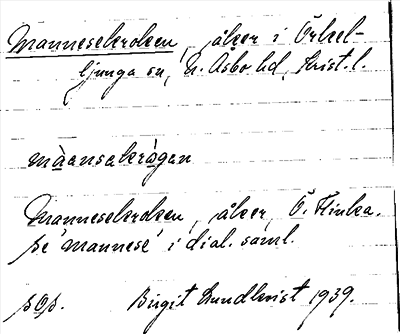 Mannesekroken, åker i Örkel-
ljunga sn, N. Åsbo hd, Krist. l.
màansakrågan
Mannesekroken, åker, Ö. Flinka.
Se 'mannese' i dial. saml.
Birgit Lundkvist 1939.